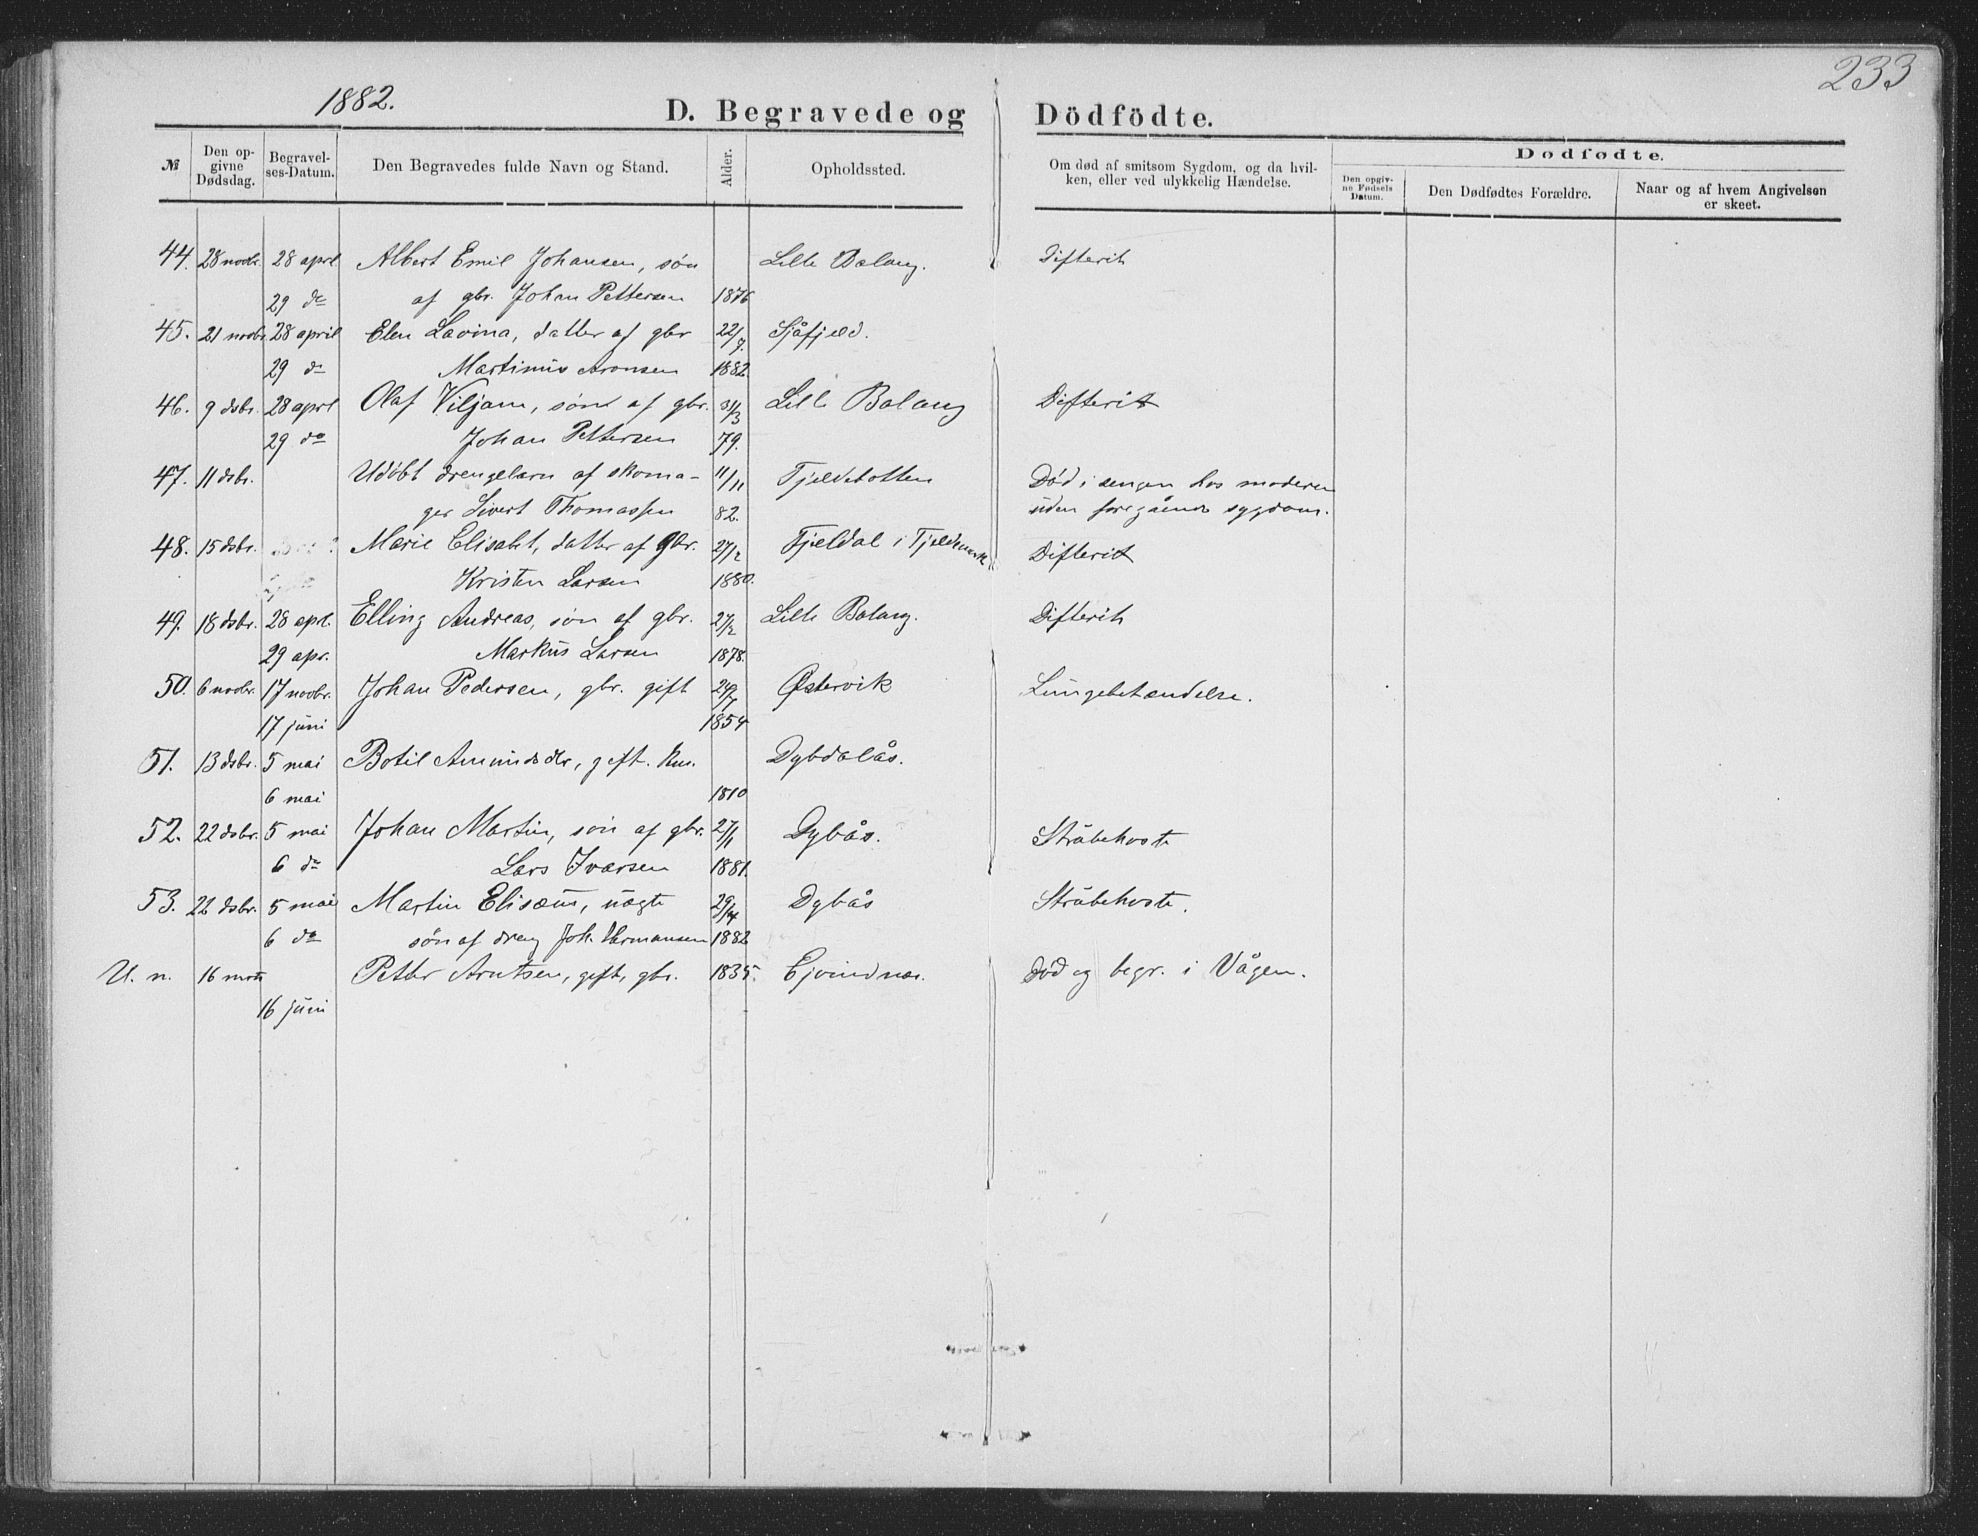 233
1882.
D. Begravede og Dödfödte.
№ Den op-givne Dødsdag. Begravel-ses-Datum. Den Begravedes fulde Navn og Stand. Alder. Opholdssted. Om død af smitsom Sygdom, og da hvil-ken, eller ved ulykkelig Hændelse. Dødfødte. Den opgiv-ne Fødsels Datum. Den Dødfødtes Forældre. Naar og af hvem Angivelsen er skeet.
44. 28 novbr. 28 april Albert Emil Johansen, søn Lille Balang. Difterit
29 do af gbr. Johan Pettersen 1876
45. 21 novbr. 28 april Elen Lavina, datter af gbr 22/7 Sjåfjeld.
29 do Martinus Aronsen 1882.
46. 9 dsbr. 28 april Olaf Viljam, søn af gbr. 31/3 Lille Balang Difterit
29 do Johan Pettersen 79.
47. 11 dsbr. Udöbt drengebarn af skoma- 11/11 Fjeldbotten Död i sengen hos moderen
ger Sivert Thomassen 82. uden foregående sygdom.
48. 15 dsbr. Marie Elisabet, datter af gbr. 27/2 Fjeldal i Tjeldsund Difterit
Kristen Larsen 1880.
49. 18 dsbr. 28 april Elling Andreas, søn af gbr. 27/2 Lille Balang. Difterit
29 apr. Markus Larsen 1878.
50. 6 novbr. 17 novbr. Johan Pedersen, gbr. gift Østervik Lungebetændelse.
17 juni 1854
51. 13 dsbr. 5 mai Botil Amundsdtr, gift. kus. Dybdalås.
6 mai 1810
52. 22 dsbr. 5 mai Johan Martin, søn af gbr. 27/1 Dybås. Stråbehoste
6 do Lars Ivarsen 1881.
53. 22 dsbr. 5 mai Martin Elisæus, uægte 29/4 Dybås Stråbehoste.
6 do søn af dreng Joh. Hermansen 1882
U. n. 16 mars Petter Arntsen, gift, gbr. 1835. Ejvindnes. Död og begr. i Vågen.
16 juni